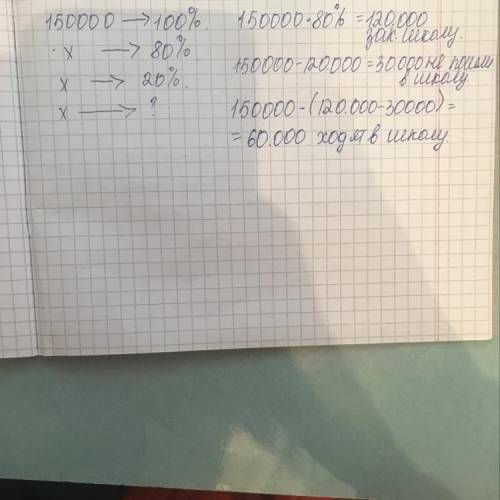 150000 → 100%.
x → 80%.
x → 20%.
x → ?
150000 · 80% = 120.000
зак. школу.
150000 - 120.000 = 30000 не пошли
в школу
150000 - (120.000 - 30000) =
= 60.000 ходят в школу.